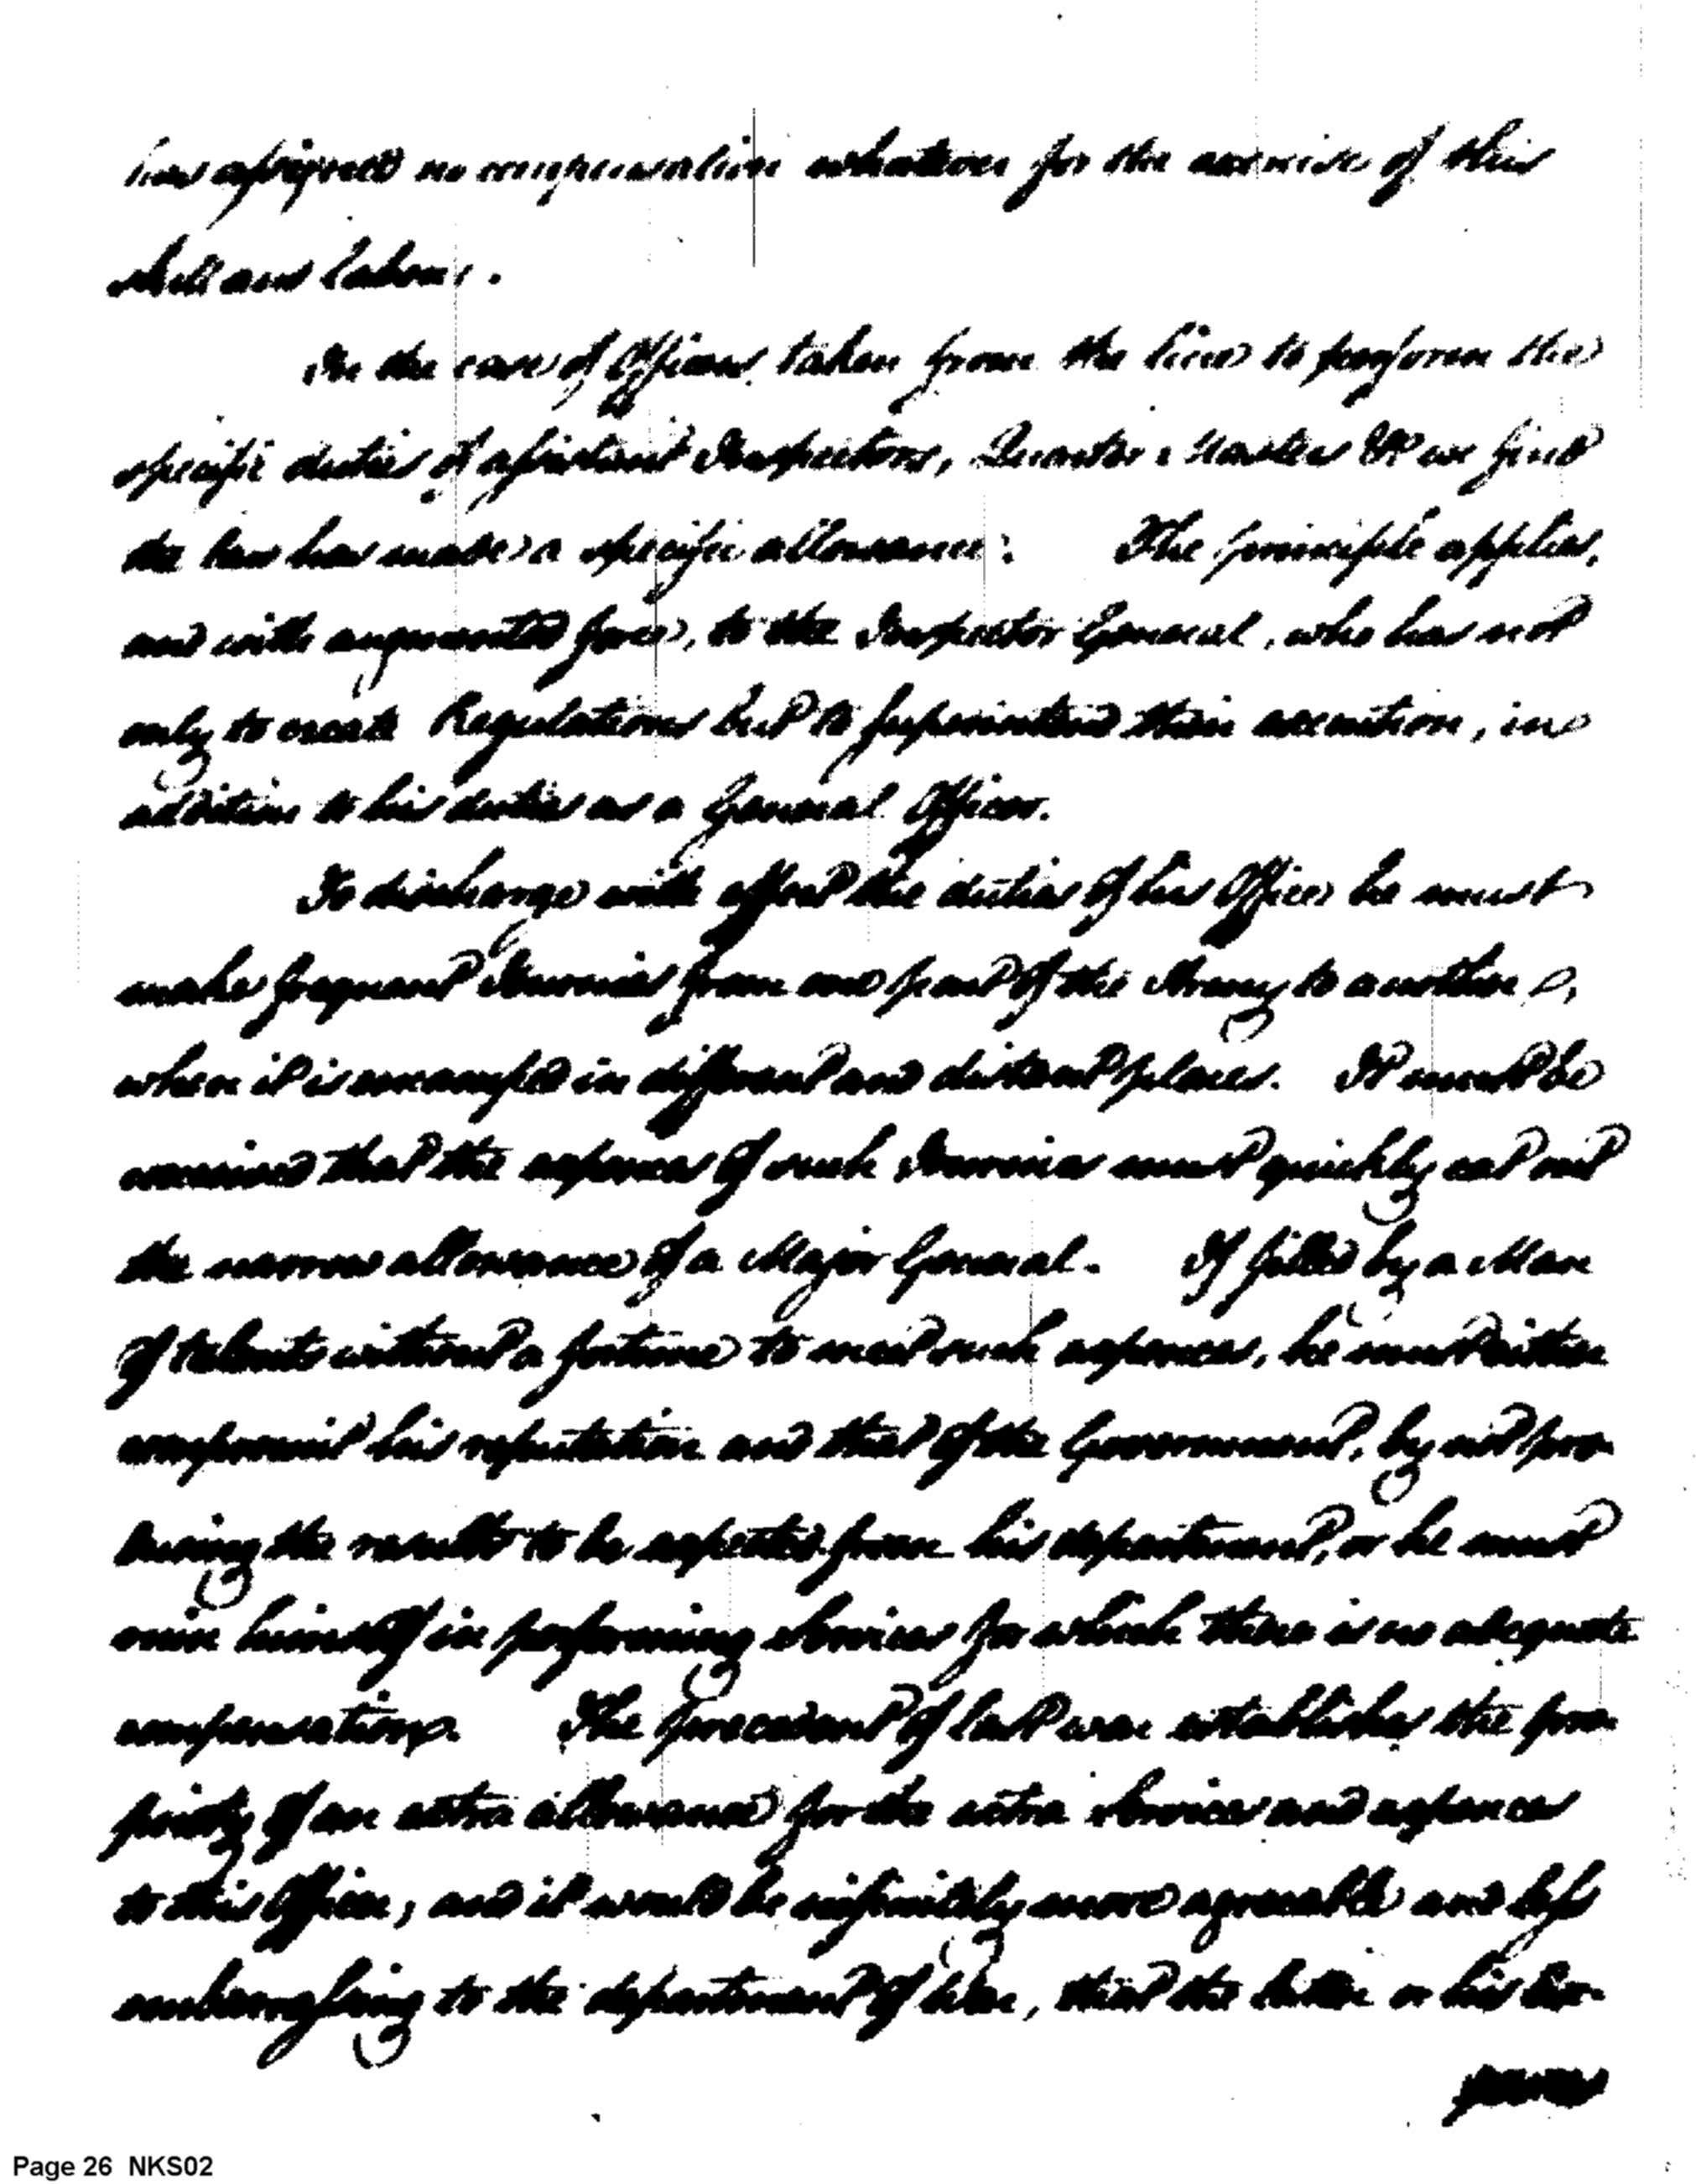 has assigned no compensation whatever for the exercise of this
skill and labour.
In the case of Officers taken from the line to perform the
specific duties of assistant Inspectors, Quarter Master &c we find
the law has made a specific allowance: The principle applies,
and with augmented force, to the Inspector General, who has not
only to create Regulations but to superintend their execution, in
addition to his duties as a General Officer.
To discharge with effect the duties of his Office he must
make frequent Journies from one part of the Army to another,
when it is encamped in different and distant places. It must be
that the expences of such Journies must quickly eat out
the narrow allowance of a Major General. If filled by a Man
of talents without a fortune to meet such expences, he must either
compromit his reputation and that of the Government, by not pro
ducing the results to be expected from his department, or he must
ruin himself in performing services for which there is no adequate
compensation. The precedent of last war establishes the pro
priety of an extra allowance for the extra services and expences
to this Officer, and it would be infinitely more agreeable and less
embarrassing to the department of War, that the latter or his Ex-
pences
Page 26 NKS02